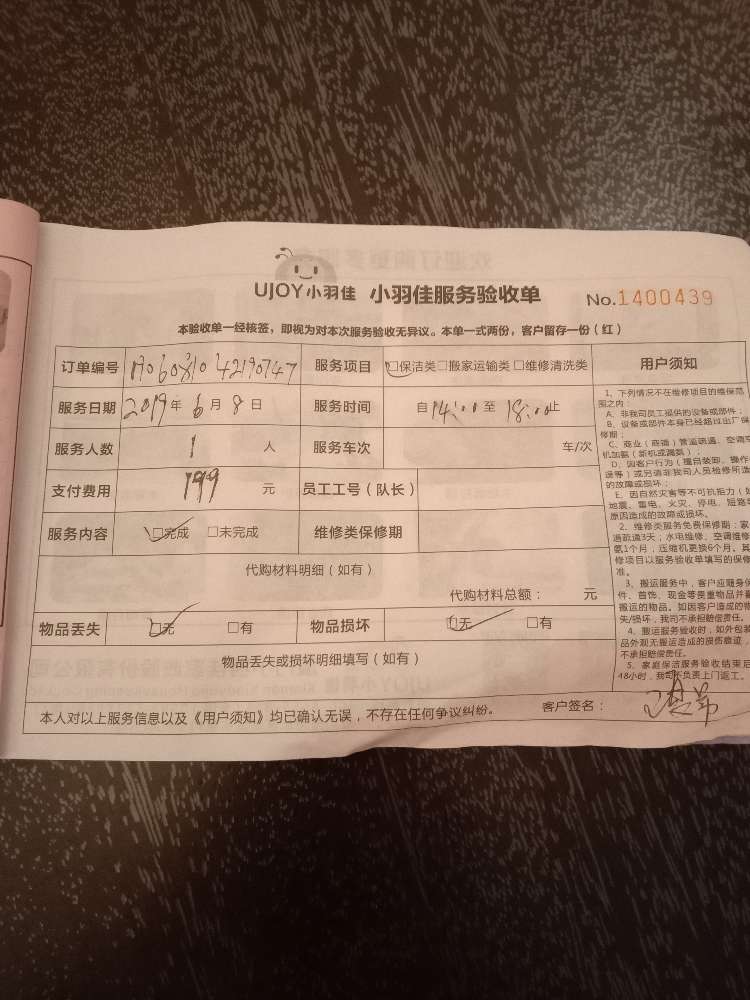 UJOY小羽佳 小羽佳服务验收单 No.1400439
本验收单一经核签，即视为对本次服务验收无异议。本单一式两份，客户留存一份（红）
订单编号 服务项目 □保洁类□搬家运输类□维修清洗类 用户须知
服务日期 2019年6月8日 服务时间 自14:00至18:00止
服务人数 1 人 服务车次 车/次
支付费用 199 元 员工工号（队长）
服务内容 □完成 □未完成 维修类保修期
代购材料明细（如有）
代购材料总额： 元
物品丢失 □无 □有 物品损坏 □无 □有
物品丢失或损坏明细填写（如有）
本人对以上服务信息以及《用户须知》均已确认无误，不存在任何争议纠纷。 客户签名：
1、下列情况不在维修项目的维保范
围之内：
A、非我司员工提供的设备或部件；
B、设备或部件本身已经超过出厂保
修期；
C、商业（商铺）管道疏通、空调
机加氨（新机或漏氨）；
D、因客户行为（擅自装卸、操作
误等）或另请非我司人员检修所造
的故障或损坏；
E、因自然灾害等不可抗拒力（如
地震、雷电、火灾、停电、短路
原因造成的故障或损坏。
2、维修类服务免费保修期：家
道疏通3天；水电维修、空调维修
氨1个月；压缩机更换6个月。其
修项目以服务验收单填写的保修
准。
3、搬运服务中，客户应随身保
件、首饰、现金等贵重物品并
搬运的物品。如因客户造成的物
失/损坏，我司不承担赔偿责任。
4、搬运服务验收时，如外包装
品外观无搬运造成的损伤痕迹，
不承担赔偿责任。
5、家庭保洁服务验收结束后
48小时，我司不负责上门返工。